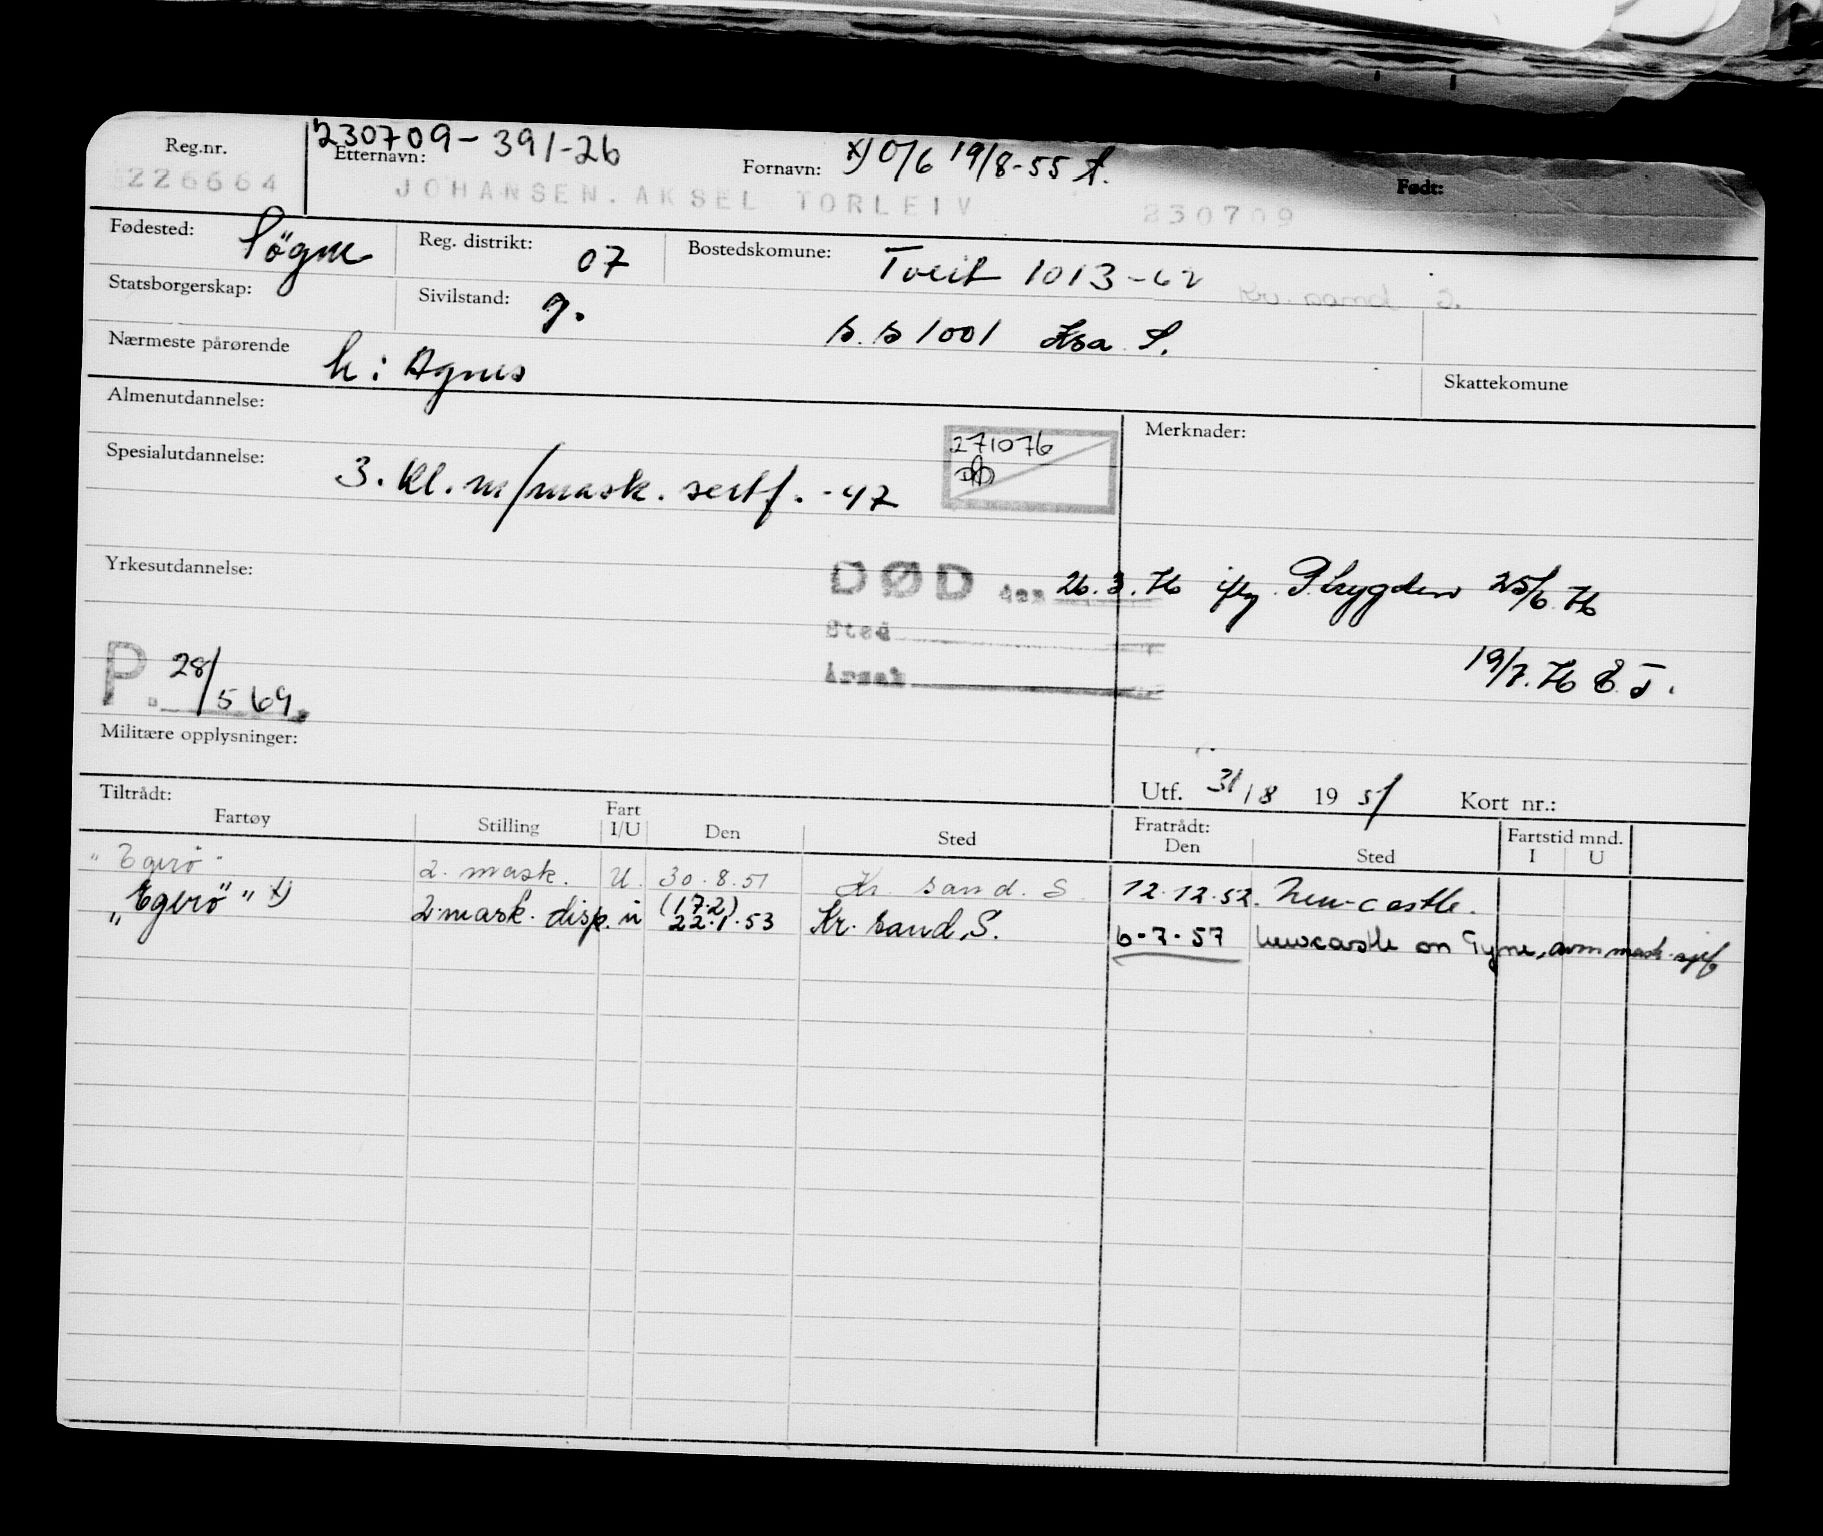 230709-391-26
Reg.nr. Etternavn: Fornavn: x) O/6 19/8-55 Født:
226664 JOHANSEN.AKSEL TORLEIV 230709
Fødested: Søgne Reg. distrikt: 07 Bostedskomune: Tveit 1013-62
Kr. sand S.
Statsborgerskap: Sivilstand: g. s.s 1001 Krsa S.
Nærmeste pårørende h: Agnes Skattekomune
Almenutdannelse: Merknader:
271076
Spesialutdannelse: 3. kl. m/mask. sertf. -47
Yrkesutdannelse: DØD den 26.3.76 iflg. P.trygden 25/6 76
Sted
Årsak 19/7.76 E.T.
P. 28/5 69.
Militære opplysninger:
Utf. 31/8 19 51 Kort nr.:
Tiltrådt: Fratrådt: Fartstid mnd.
Fartøy Stilling Fart I/U Den Sted Den Sted I U
"Egerö" 2. mask. U. 30.8.51 Kr. sand. S 12.12.52. New-castle.
"Egerö" x) 2.mask. disp. u (17.2) 22.1.53 Kr. sand, S. 6-7-57 Newcastle on Tyne, avm mask.sjef